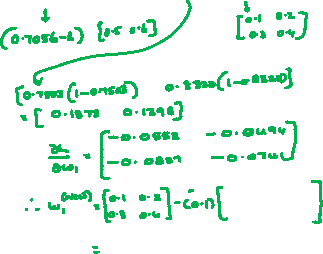 (0.7056-1) [0.5 0.6] [0.1 0.2
0.3 0.4]
(1-0.7503) 
= [0.1873 0.1398]
∂w₁ = [-0.0552 -0.0494
-0.0827 -0.0741]
∴ w₁⁽ⁿᵉʷ⁾ = [0.1 0.2
0.3 0.4] - (0.1) [ ]
=